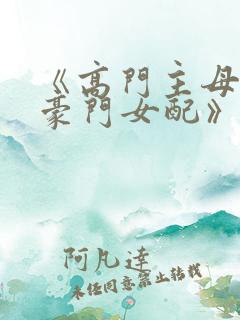 《高門主母
豪門女配》
阿凡達
未經同意禁止轉載